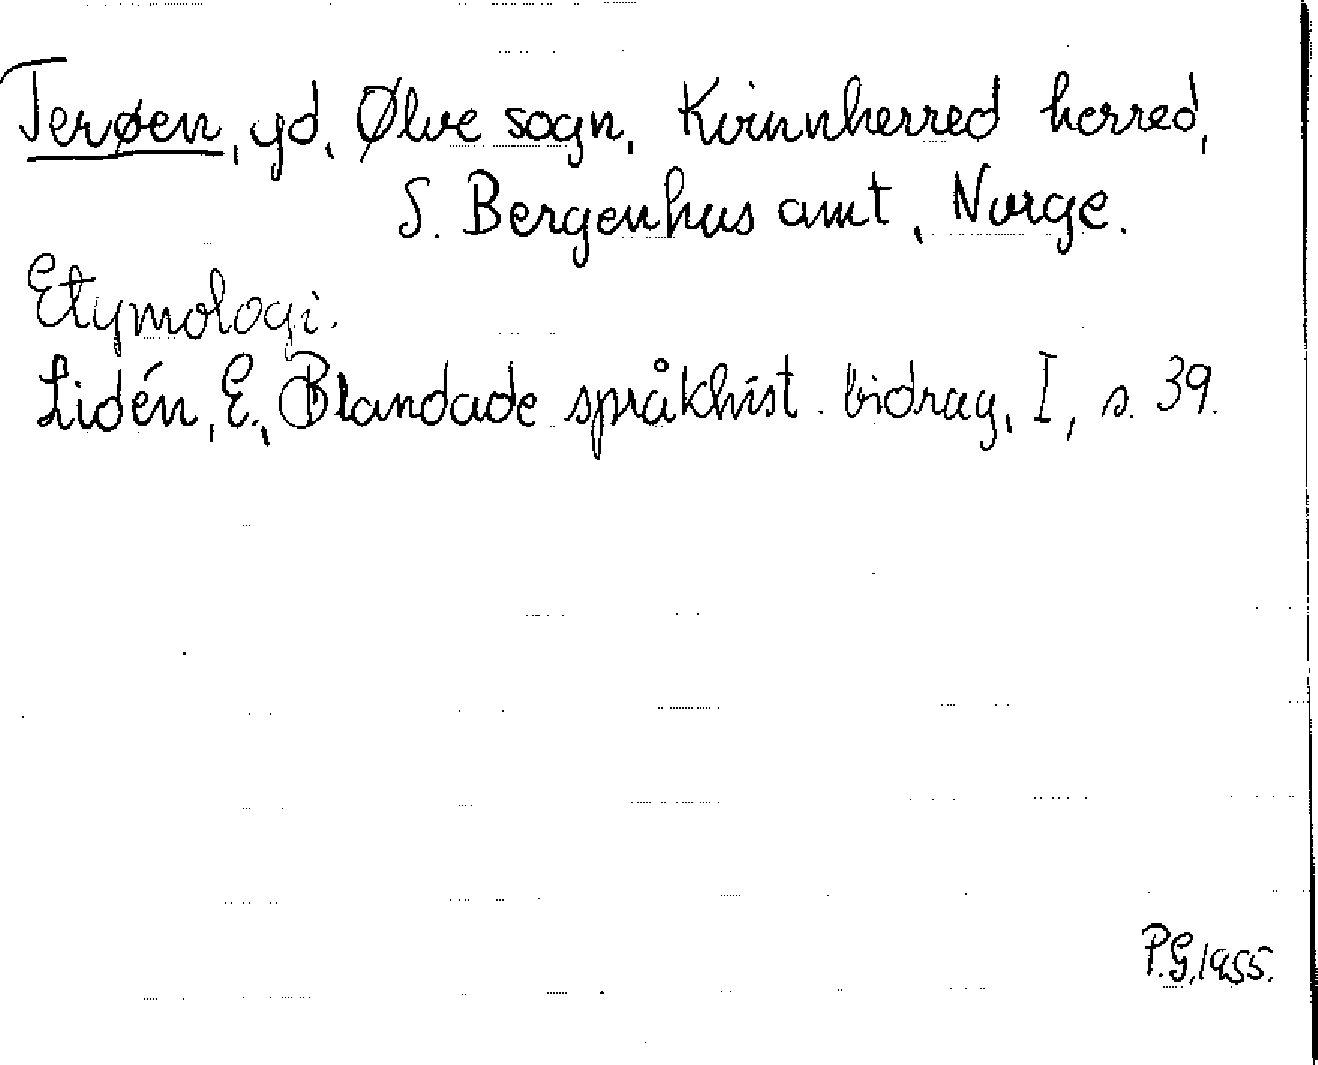 Terøen, gd, Ølve sogn, Kvinnherred herred,
S. Bergenhus amt, Norge.
Etymologi.
Lidén, E., Blandade språkhist. bidrag, I, s. 39.
P.G, 1955.